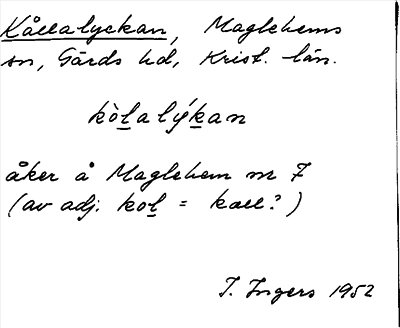 Kållalyckan, Maglehems
sn, Gärds hd, Krist. län.
kòlalýkan
åker å Maglehem nr 7
(av adj. kol = kall?)
I. Ingers 1952